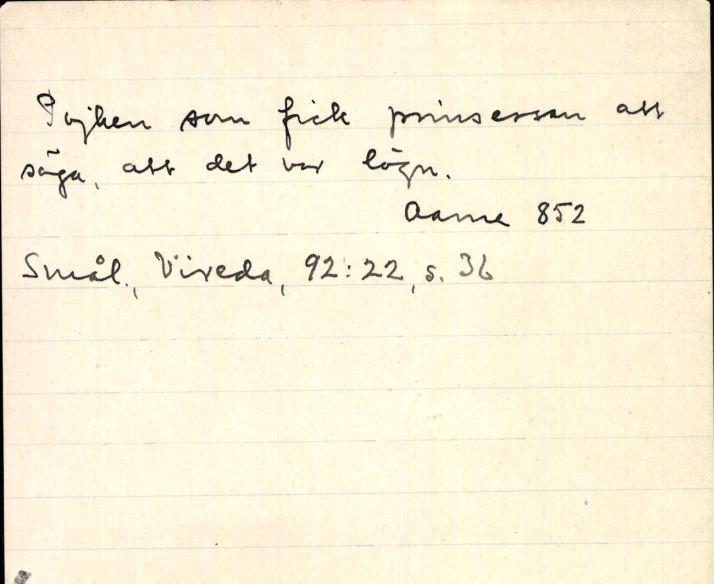 Pojken som fick prinsessan att
säga, att det var lögn.
Aarne 852
Smål., Vireda, 92:22, s. 36